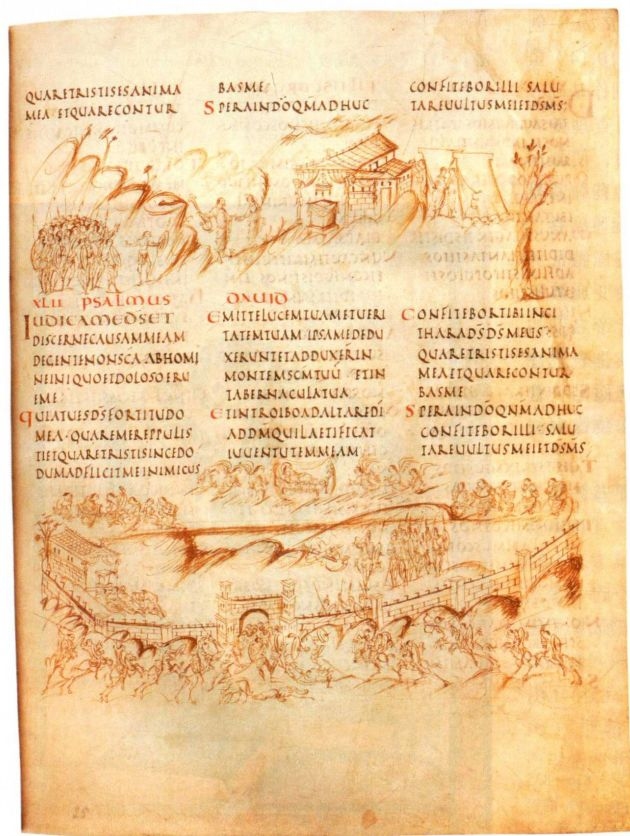 QUARETRISTISESANIMA
MEA·ETQUARECONTUR
BASME
SPERAINDŌQMADHUC
CONFITEBORILLI·SALU
TAREUULTUSMEIETDSMS·
XLII PSALMUS DAUID
IUDICAMEDSET
DISCERNECAUSAMMEAM
DEGENTENONSCA·ABHOMI
NEINIQUOETDOLOSOERU
EME·
QUIATUESDSFORTITUDO
MEA·QUAREMEREPPULIS
TIETQUARETRISTISINCEDO
DUMADFLICITMEINIMICUS
EMITTELUCEMTUAMETUERI
TATEMTUAM·IPSAMEDEDU
XERUNTETADDUXERIN
MONTEMSCMTUU·ETIN
TABERNACULATUA·
ETINTROIBOADALTAREDI·
ADDMQUILAETIFICAT
IUUENTUTEMMEAM
CONFITEBORTIBIINCI
THARADSDSMEUS·
QUARETRISTISESANIMA
MEAETQUARECONTUR
BASME
SPERAINDŌQNMADHUC
CONFITEBORILLI·SALU
TAREUULTUSMEIETDSMS
25